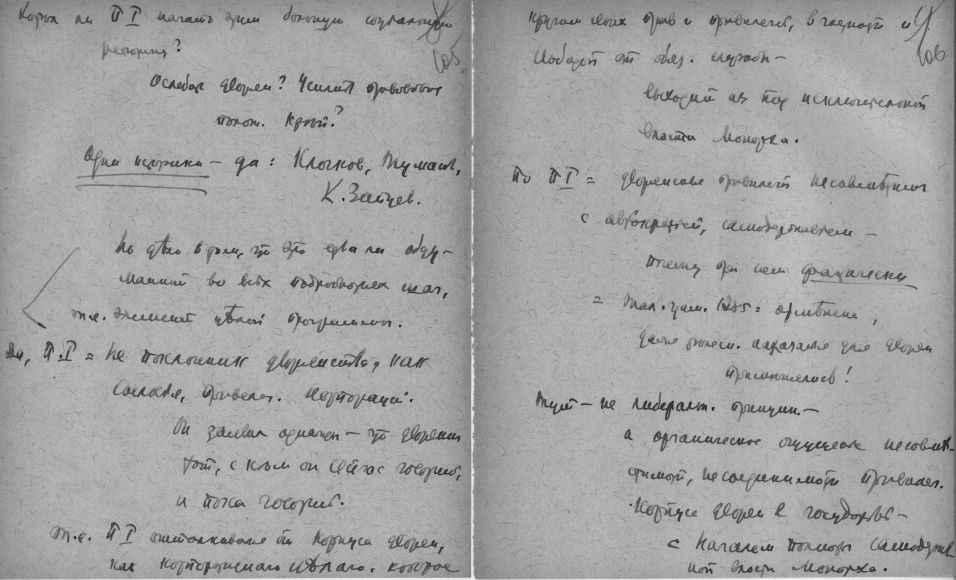 Хотел ли П I начать этим большую социальную
реформу?
Ослабить дворян? Усилить правовое
полож. крест.?
Одни историки — да: Клочков, Туманов,
К. Зайцев.
Но дѣло в том, что это едва ли обду-
манный во всѣх подробностях шаг,
т.е. элемент цѣлой программы.
Да, П. I = не поклонник дворянства, как
сословия, привилег. корпорации.
Он заявил однажды — что дворянин
тот, с кѣм он сейчас говорит,
и пока говорит.
Т.е. П I отталкивало от корпуса дворян,
как корпоративного цѣлаго, которое
105
кругом своих прав и привилегий, в частности и
свободой от обяз. службы —
выходит из под исключительной
власти Монарха.
106
По П I = дворянские привилегии несовмѣстимы
с автократией, самодержавием —
почему при нем фактически
= Жал. грам. 1785 = отмѣнена,
даже тѣлесн. наказание для дворян
применялись!
Тут — не либеральн. принцип —
а органическое ощущение несовмѣ-
стимости, несоединимости привилег.
корпуса дворян в государствѣ —
с началом полноты самодержав
ной власти Монарха.